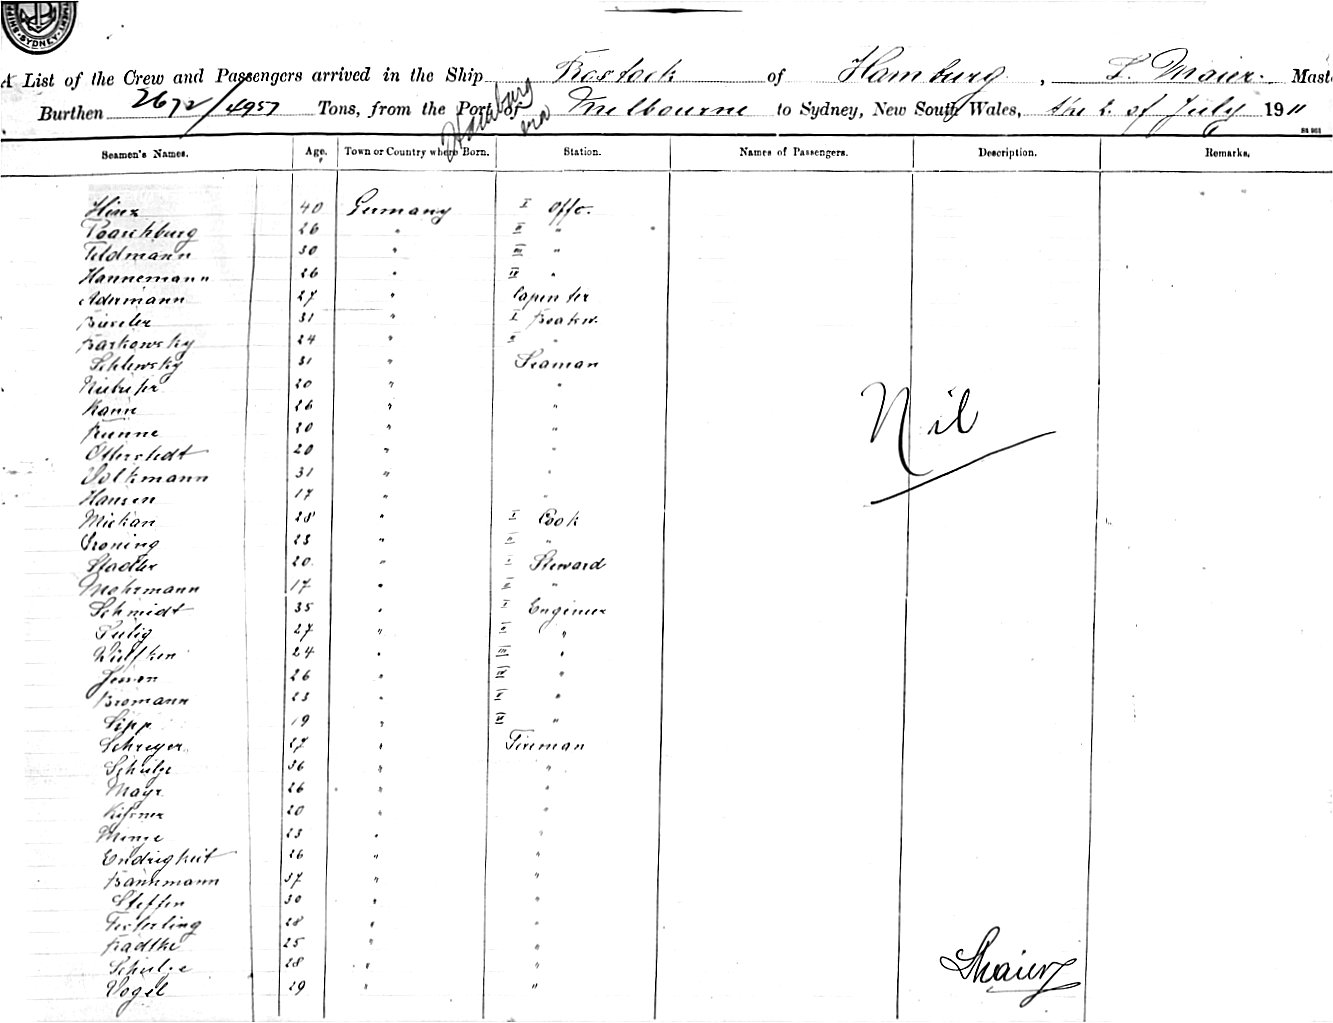 SYDNEY
A List of the Crew and Passengers arrived in the Ship Rostock of Hamburg, F. Maier. Mast
Burthen 2672/4957 Tons, from the Port of Hamburg via Melbourne to Sydney, New South Wales, the 2. of July 1911
Seamen's Names. Age. Town or Country where Born. Station. Names of Passengers. Description. Remarks.
Hinz 40 Germany I Offc.
26 " II "
Feldmann 30 " III "
Hannemann 26 " IV "
Adermann 27 " Capenter
31 " I Boatsw.
Barkowsky 24 " II "
31 " Seaman
Niebuhr 20 " "
Kann 26 " "
20 " "
Otterstedt 20 " "
Volkmann 31 " "
Hansen 17 " "
Nil
28 " I Cook
23 " II "
Stadler 20 " I Steward
Mohrmann 17 " II "
Schmidt 35 " I Engineer
27 " II "
Wulfken 24 " III "
26 " "
Bromann 23 " "
Lipp 19 " "
Schreyer 27 " Fireman
Schulze 36 " "
Mayr 26 " "
20 " "
23 " "
Endrigkeit 26 " "
Bannmann 37 " "
Steffen 30 " "
28 " "
Radtke 25 " "
Schulze 28 " "
Vogel 29 " "
FMaier